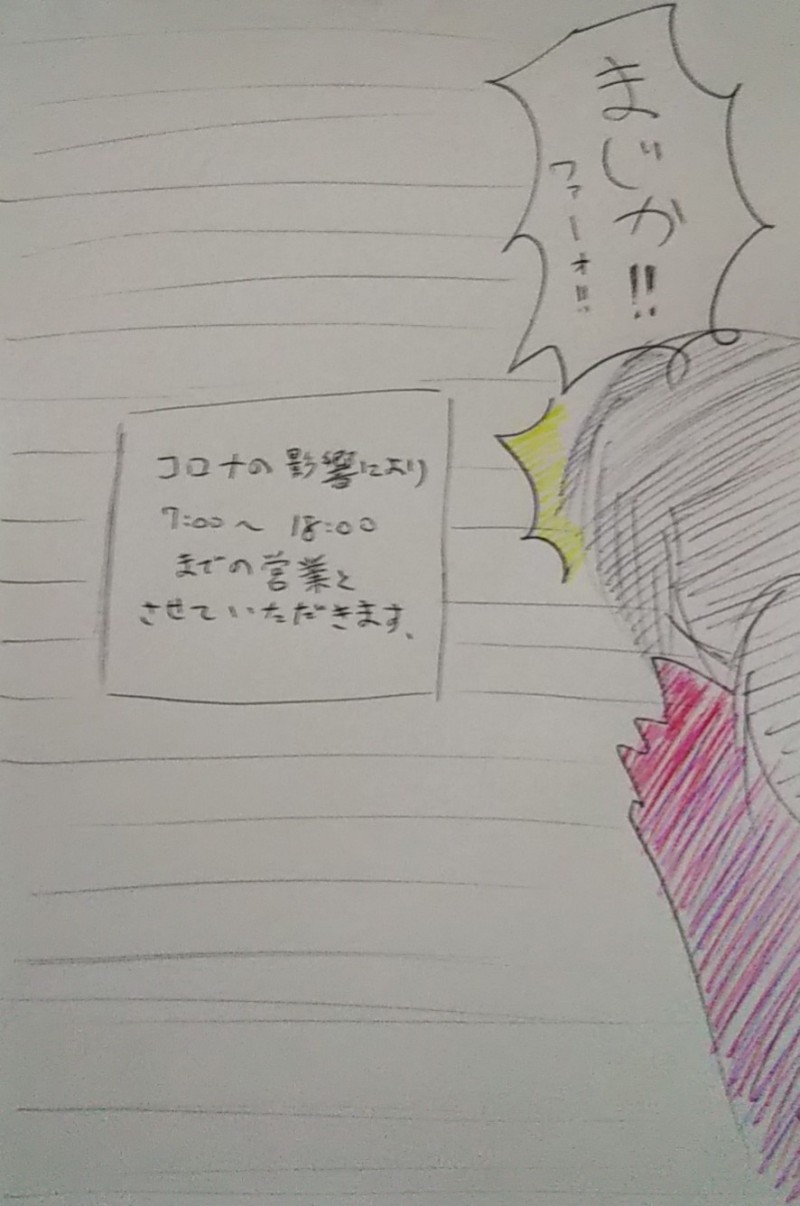 まじか!!
ファーオ!!
コロナの影響により
7:00〜18:00
までの営業と
させていただきます、